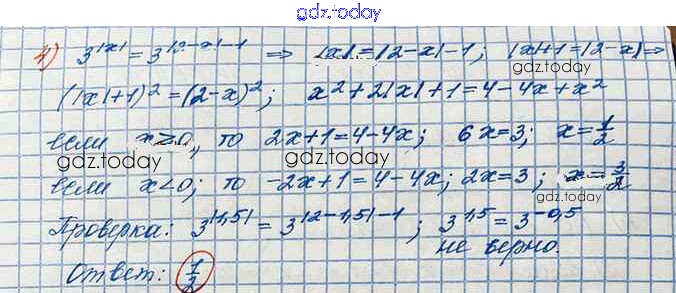 gdz.today
4) 3^|x| = 3^|2-x|-1 ⇒ |x|=|2-x|-1; |x|+1=|2-x| ⇒
gdz.today
(|x|+1)²=(2-x)²; x²+2|x|+1=4-4x+x²
gdz.today
если x≥0, то 2x+1=4-4x; 6x=3; x=1/2
gdz.today
если x<0; то -2x+1=4-4x; 2x=3; x=3/2
gdz.today
Проверка: 3^|1,5| = 3^|2-1,5|-1; 3^1,5 = 3^-0,5
gdz.today
не верно.
Ответ: 1/2
gdz.today